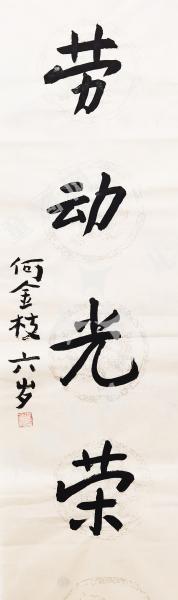 劳动光荣
何金枝六岁